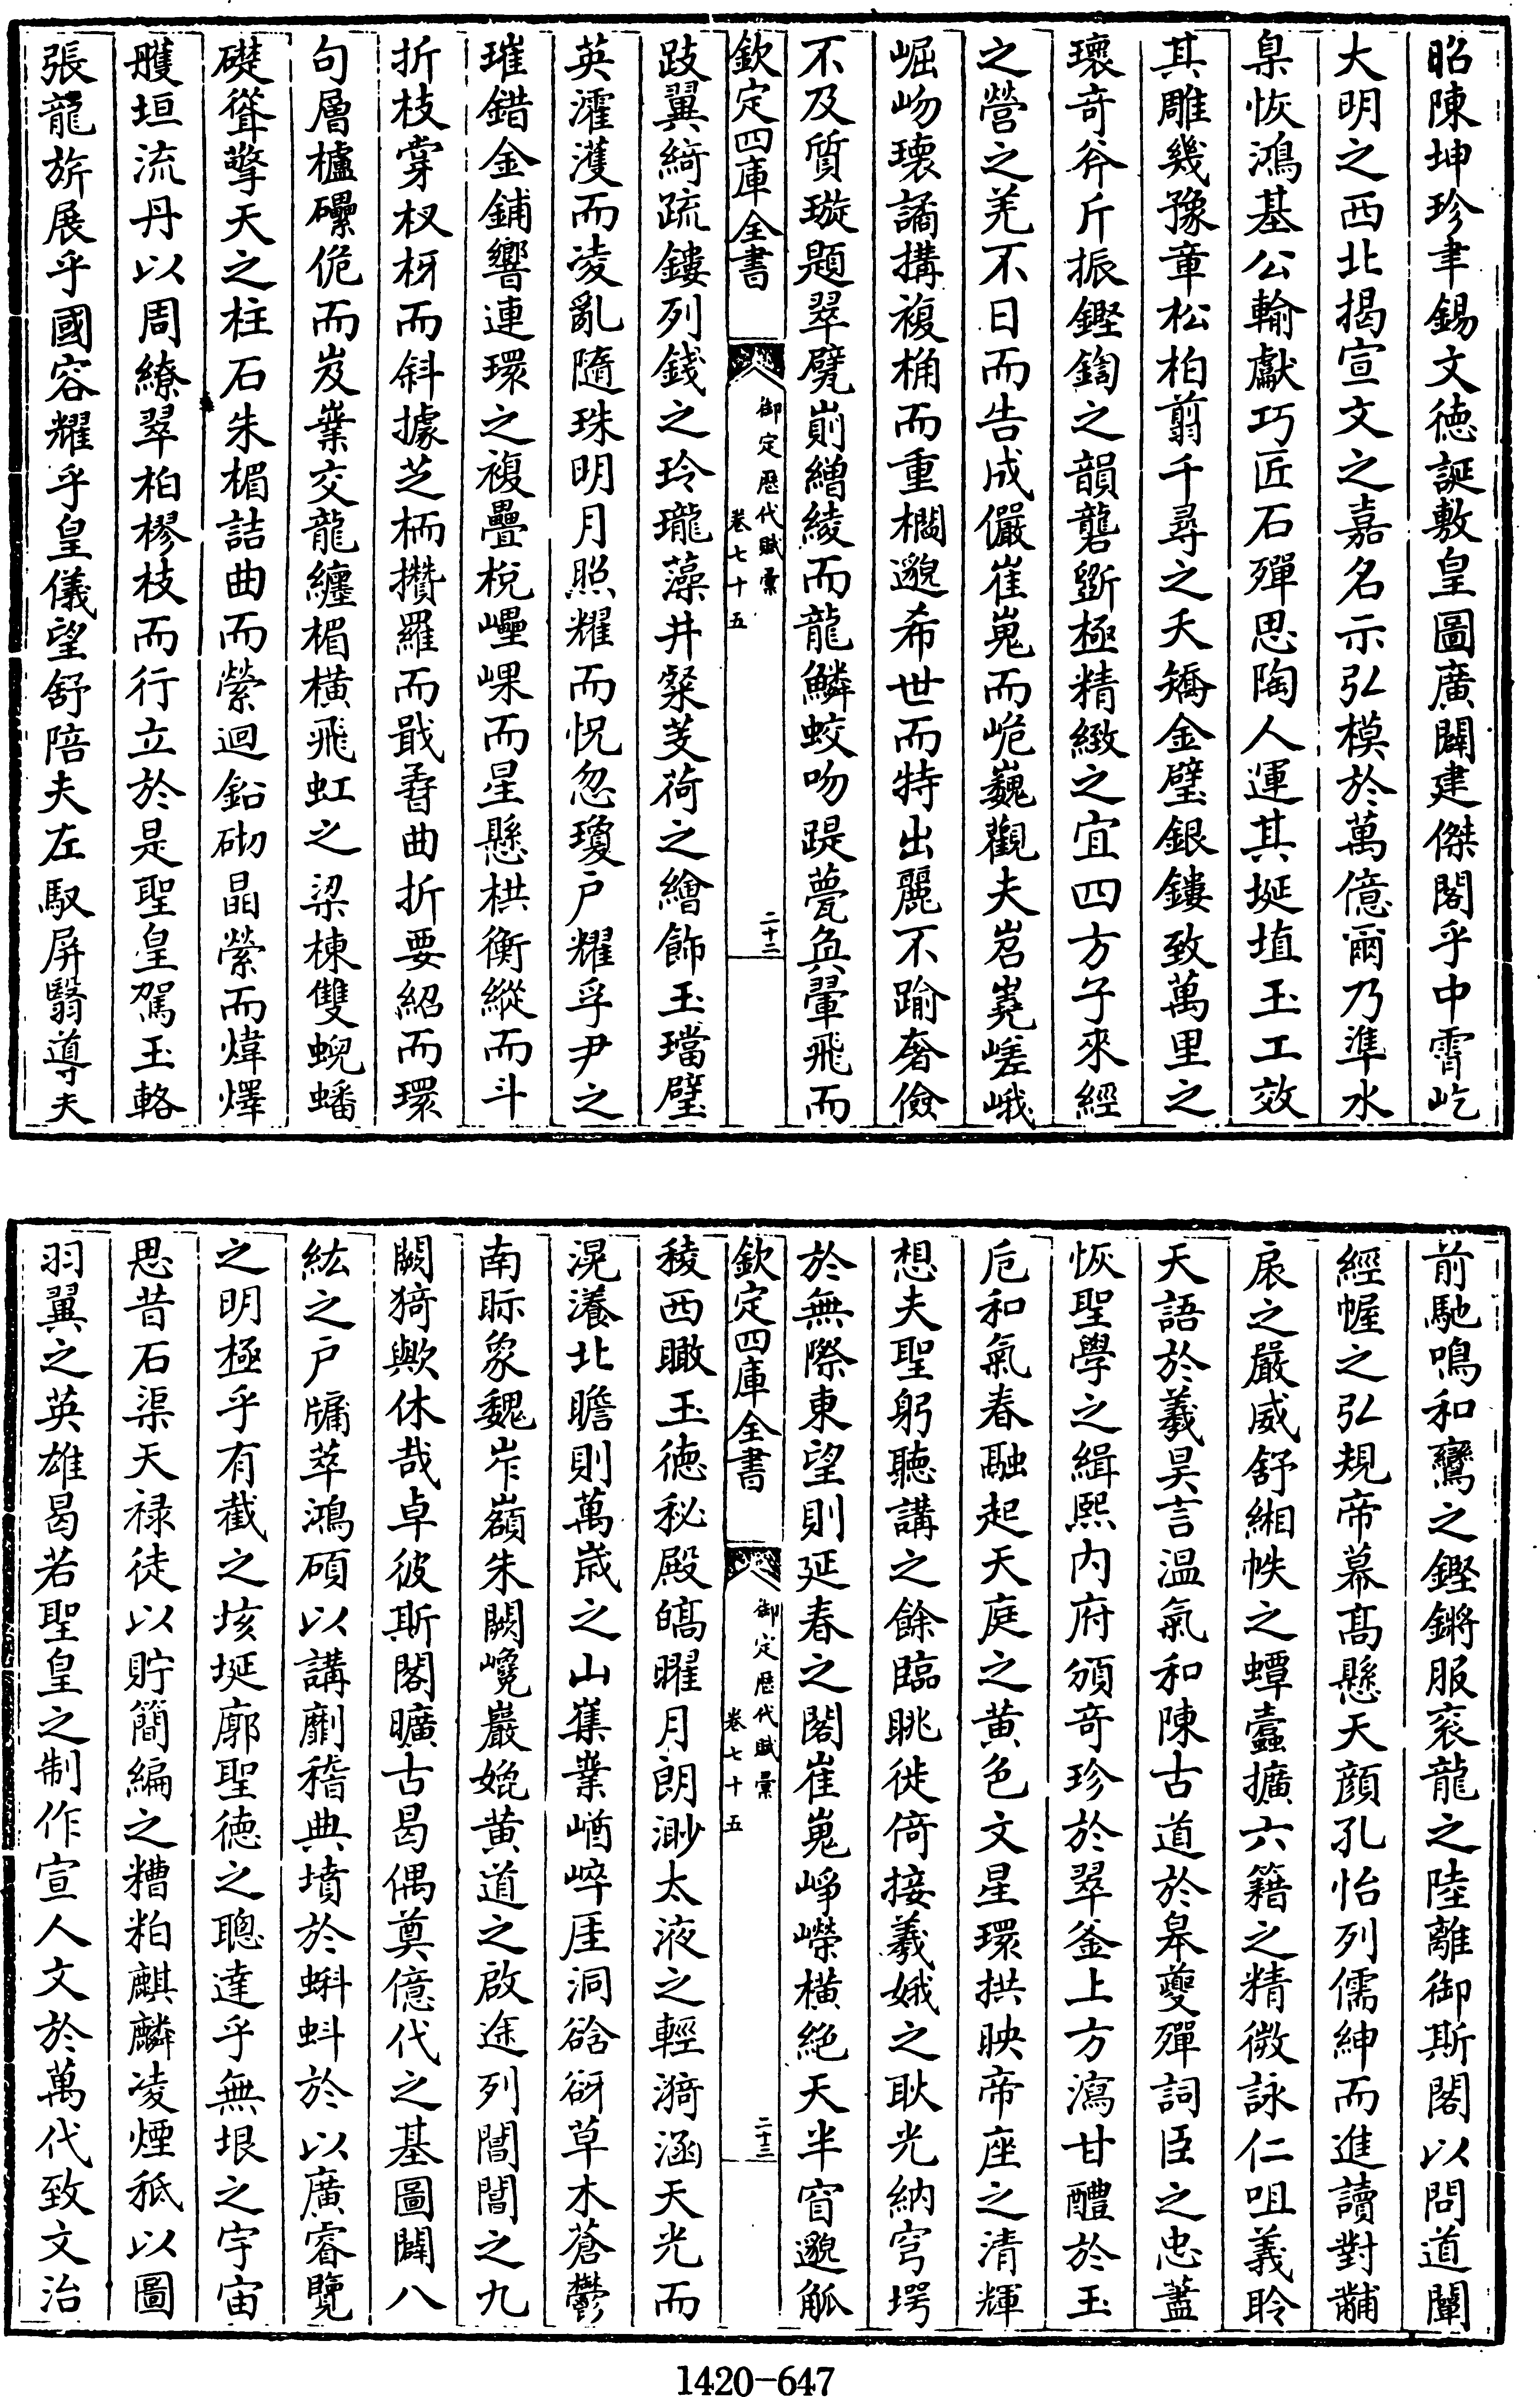 昭陳坤珍聿錫文德誕敷皇圖廣闢建傑閣乎中霄屹
大明之西北揭宣文之嘉名示弘模於萬億爾乃準水
臬恢鴻基公輸獻巧匠石殫思陶人運其埏埴玉工效
其雕幾豫章松柏翦千尋之夭矯金璧銀鏤致萬里之
瓌奇斧斤振鏗鍧之韻礱斵極精緻之宜四方子來經
之營之羌不日而告成儼崔嵬而峗巍觀夫岧嶤嵯峨
崛岉瓌譎搆複桷而重櫩邈希世而特出麗不踰奢儉
不及質璇題翠甓崱繒綾而龍鱗蛟吻踶甍奐翬飛而
欽定四庫全書
御定歷代賦彙
卷七十五
二十二
跂翼綺疏鏤列錢之玲瓏藻井粲芰荷之繪飾玉璫璧
英灌濩而凌亂隨珠明月照耀而怳忽瓊戶耀孚尹之
璀錯金鋪響連環之複疊梲㠥崐而星懸栱衡縱而斗
折枝牚杈枒而斜據芝栭攢羅而戢孴曲折要紹而環
句層櫨礧佹而岌嶪交龍纏楣橫飛虹之梁棟雙蜺蟠
礎聳擎天之柱石朱楣詰曲而縈迴鉛砌晶縈而煒燡
雘垣流丹以周繚翠柏樛枝而行立於是聖皇駕玉輅
張龍旂展乎國容耀乎皇儀望舒陪夫左馭屏翳導夫
前馳鳴和鸞之鏗鏘服衮龍之陸離御斯閣以問道闡
經幄之弘規帝幕高懸天顔孔怡列儒紳而進讀對黼
扆之嚴威舒緗帙之蟫蠹擴六籍之精微詠仁咀義聆
天語於羲昊言温氣和陳古道於臯夔殫詞臣之忠藎
恢聖學之緝熙内府頒奇珍於翠釜上方瀉甘醴於玉
巵和氣春融起天庭之黄色文星環拱映帝座之清輝
想夫聖躬聽講之餘臨眺徙倚接羲娥之耿光納穹堮
於無際東望則延春之閣崔嵬崢嶸橫絶天半窅邈觚
欽定四庫全書
御定歷代賦彙
卷七十五
二十三
稜西瞰玉德秘殿皜曜月朗渺太液之輕漪涵天光而
滉瀁北瞻則萬歲之山嶣嶪崷崪厓洞谽谺草木蒼鬱
南眎象魏岝嶺朱闕巉巖嬔黄道之啟途列閶閶之九
闕猗歟休哉卓彼斯閣曠古曷偶奠億代之基圖闢八
紘之戶牖萃鴻碩以講劘稽典墳於蝌蚪於以廣睿覽
之明極乎有截之垓埏廓聖德之聰達乎無垠之宇宙
思昔石渠天禄徒以貯簡編之糟粕麒麟凌煙秪以圖
羽翼之英雄曷若聖皇之制作宣人文於萬代致文治
1420-647